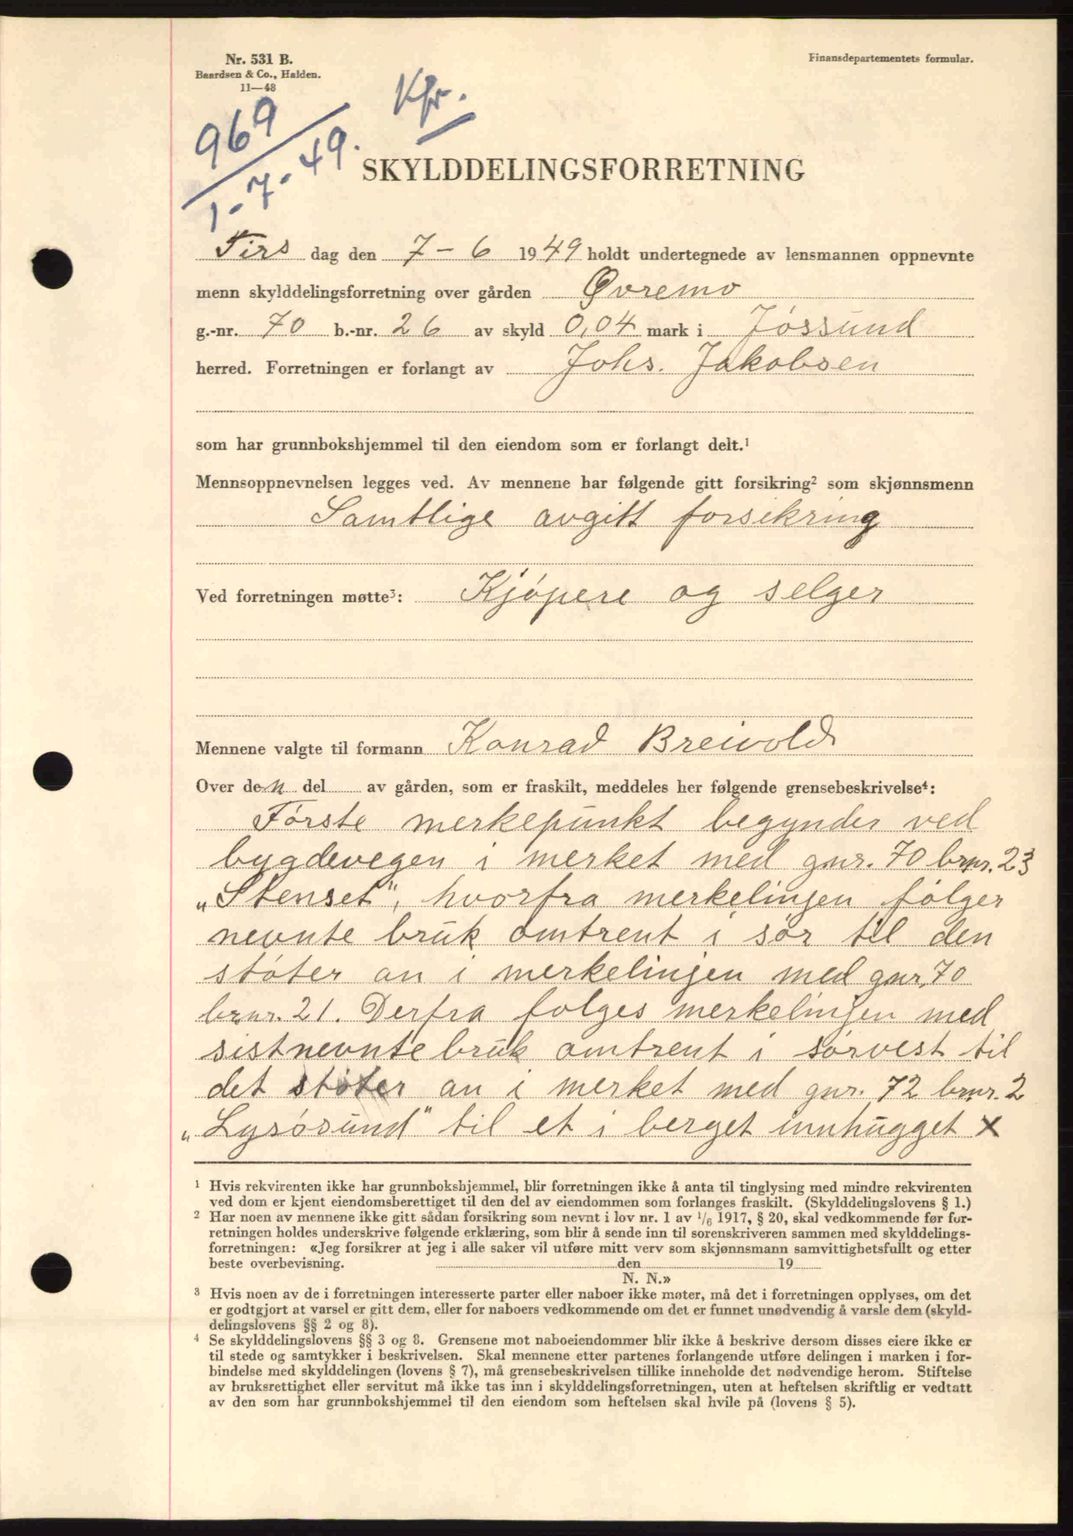 Nr. 531 B.
Baardsen & Co., Halden.
11—48
Finansdepartementets formular.
969
1-7-49.
Kfr.
SKYLDDELINGSFORRETNING
Tirs dag den 7 – 6 1949 holdt undertegnede av lensmannen oppnevnte
menn skylddelingsforretning over gården Øvremo
g.-nr. 70 b.-nr. 26 av skyld 0,04 mark i Jøssund
herred. Forretningen er forlangt av Johs. Jakobsen
som har grunnbokshjemmel til den eiendom som er forlangt delt.¹
Mennsoppnevnelsen legges ved. Av mennene har følgende gitt forsikring² som skjønnsmenn
Samtlige avgitt forsikring
Ved forretningen møtte³: Kjøpere og selger
Mennene valgte til formann Konrad Breivold
Over den del av gården, som er fraskilt, meddeles her følgende grensebeskrivelse⁴:
Første merkepunkt begynder ved
bygdevegen i merket med gnr. 70 brnr. 23
„Stenset", hvorfra merkelinjen følger
nevnte bruk omtrent i sør til den
støter an i merkelinjen med gnr. 70
brnr. 21. Derfra følges merkelinjen med
sistnevnte bruk omtrent i sørvest til
det støter an i merket med gnr. 72 brnr. 2
„Lysøsund" til et i berget innhugget X
¹ Hvis rekvirenten ikke har grunnbokshjemmel, blir forretningen ikke å anta til tinglysing med mindre rekvirenten
ved dom er kjent eiendomsberettiget til den del av eiendommen som forlanges fraskilt. (Skylddelingslovens § 1.)
² Har noen av mennene ikke gitt sådan forsikring som nevnt i lov nr. 1 av 1/6 1917, § 20, skal vedkommende før for-
retningen holdes underskrive følgende erklæring, som blir å sende inn til sorenskriveren sammen med skylddelings-
forretningen: «Jeg forsikrer at jeg i alle saker vil utføre mitt verv som skjønnsmann samvittighetsfullt og etter
beste overbevisning. den 19
N. N.»
³ Hvis noen av de i forretningen interesserte parter eller naboer ikke møter, må det i forretningen opplyses, om det
er godtgjort at varsel er gitt dem, eller for naboers vedkommende om det er funnet unødvendig å varsle dem (skyld-
delingslovens §§ 2 og 8).
⁴ Se skylddelingslovens §§ 3 og 8. Grensene mot naboeiendommer blir ikke å beskrive dersom disses eiere ikke er
til stede og samtykker i beskrivelsen. Skal mennene etter partenes forlangende utføre delingen i marken i for-
bindelse med skylddelingen (lovens § 7), må grensebeskrivelsen tillike inneholde det nødvendige herom. Stiftelse
av bruksrettighet eller servitut må ikke tas inn i skylddelingsforretningen, uten at heftelsen skriftlig er vedtatt
av den som har grunnbokshjemmel til den eiendom som heftelsen skal hvile på (lovens § 5).